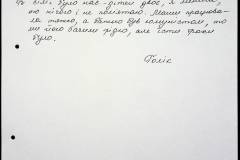 було нас дітей двоє, я менша,
що нічого і не пам'ятаю. Мама працюва-
ла тяжко, а батько був комуністом, то
ми його бачили рідко, але їсти трохи
було.
Голік